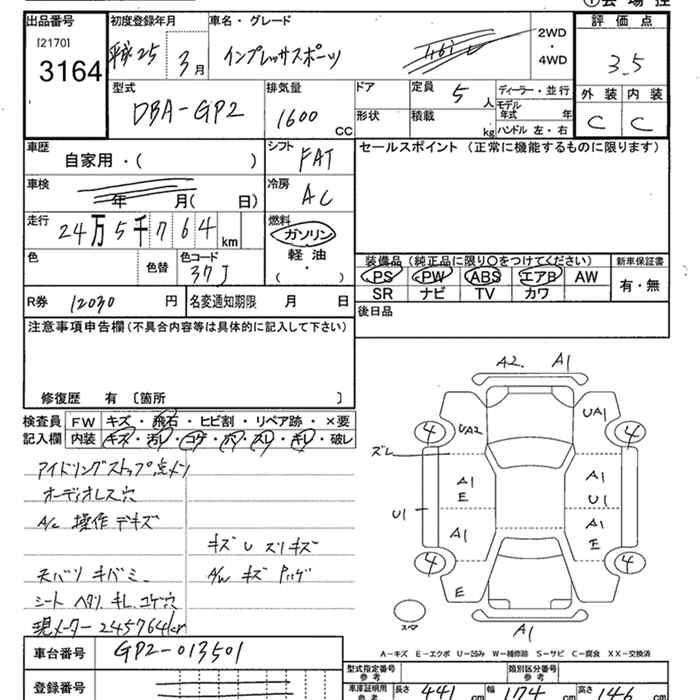 出品番号
[2170]
3164
初度登録年月
平成25 3月
車名・グレード
インプレッサスポーツ
2WD
・
4WD
評価点
3.5
外装 内装
C C
型式
DBA-GP2
排気量
1600 CC
ドア
形状
定員 5人
積載 kg
ディーラー・並行
モデル年式 年
ハンドル 左・右
車歴
自家用・( )
シフト
FAT
セールスポイント (正常に機能するものに限ります)
車検
年 月( 日)
冷房
AC
走行
24万5千764km
燃料
ガソリン
軽油
( ・ )
色
色替
色コード
37J
装備品 (純正品に限り○をつけてください)
新車保証書
PS PW ABS エアB AW
SR ナビ TV カワ
有・無
R券 12030 円
名変通知期限 月 日
後日品
注意事項申告欄 (不具合内容等は具体的に記入して下さい)
修復歴 有 〔箇所 〕
検査員記入欄
FW キズ・飛石・ヒビ割・リペア跡・×要
内装 キズ・汚レ・コゲ・穴・スレ・キレ・破レ
アイドリングストップ点メツ
オーディオレス穴
A/C 操作デキズ
キズ U スリキズ
天バリ キバミ
A/W キズ ハゲ
シート ヘタリ キレ コゲ穴
現メーター 245764km
A2 A1
UA2 UA1
4 4
ズレ
A1 E
A1 U1
U1
A1
A1 E
4 4
E
A1
A−キズ E−エクボ U−凹み W−補修跡 S−サビ C−腐食 XX−交換済
車台番号
GP2-013501
登録番号
型式指定番号 参考
類別区分番号 参考
車庫証明用 参考
長さ 441 cm
幅 174 cm
高さ 146 cm